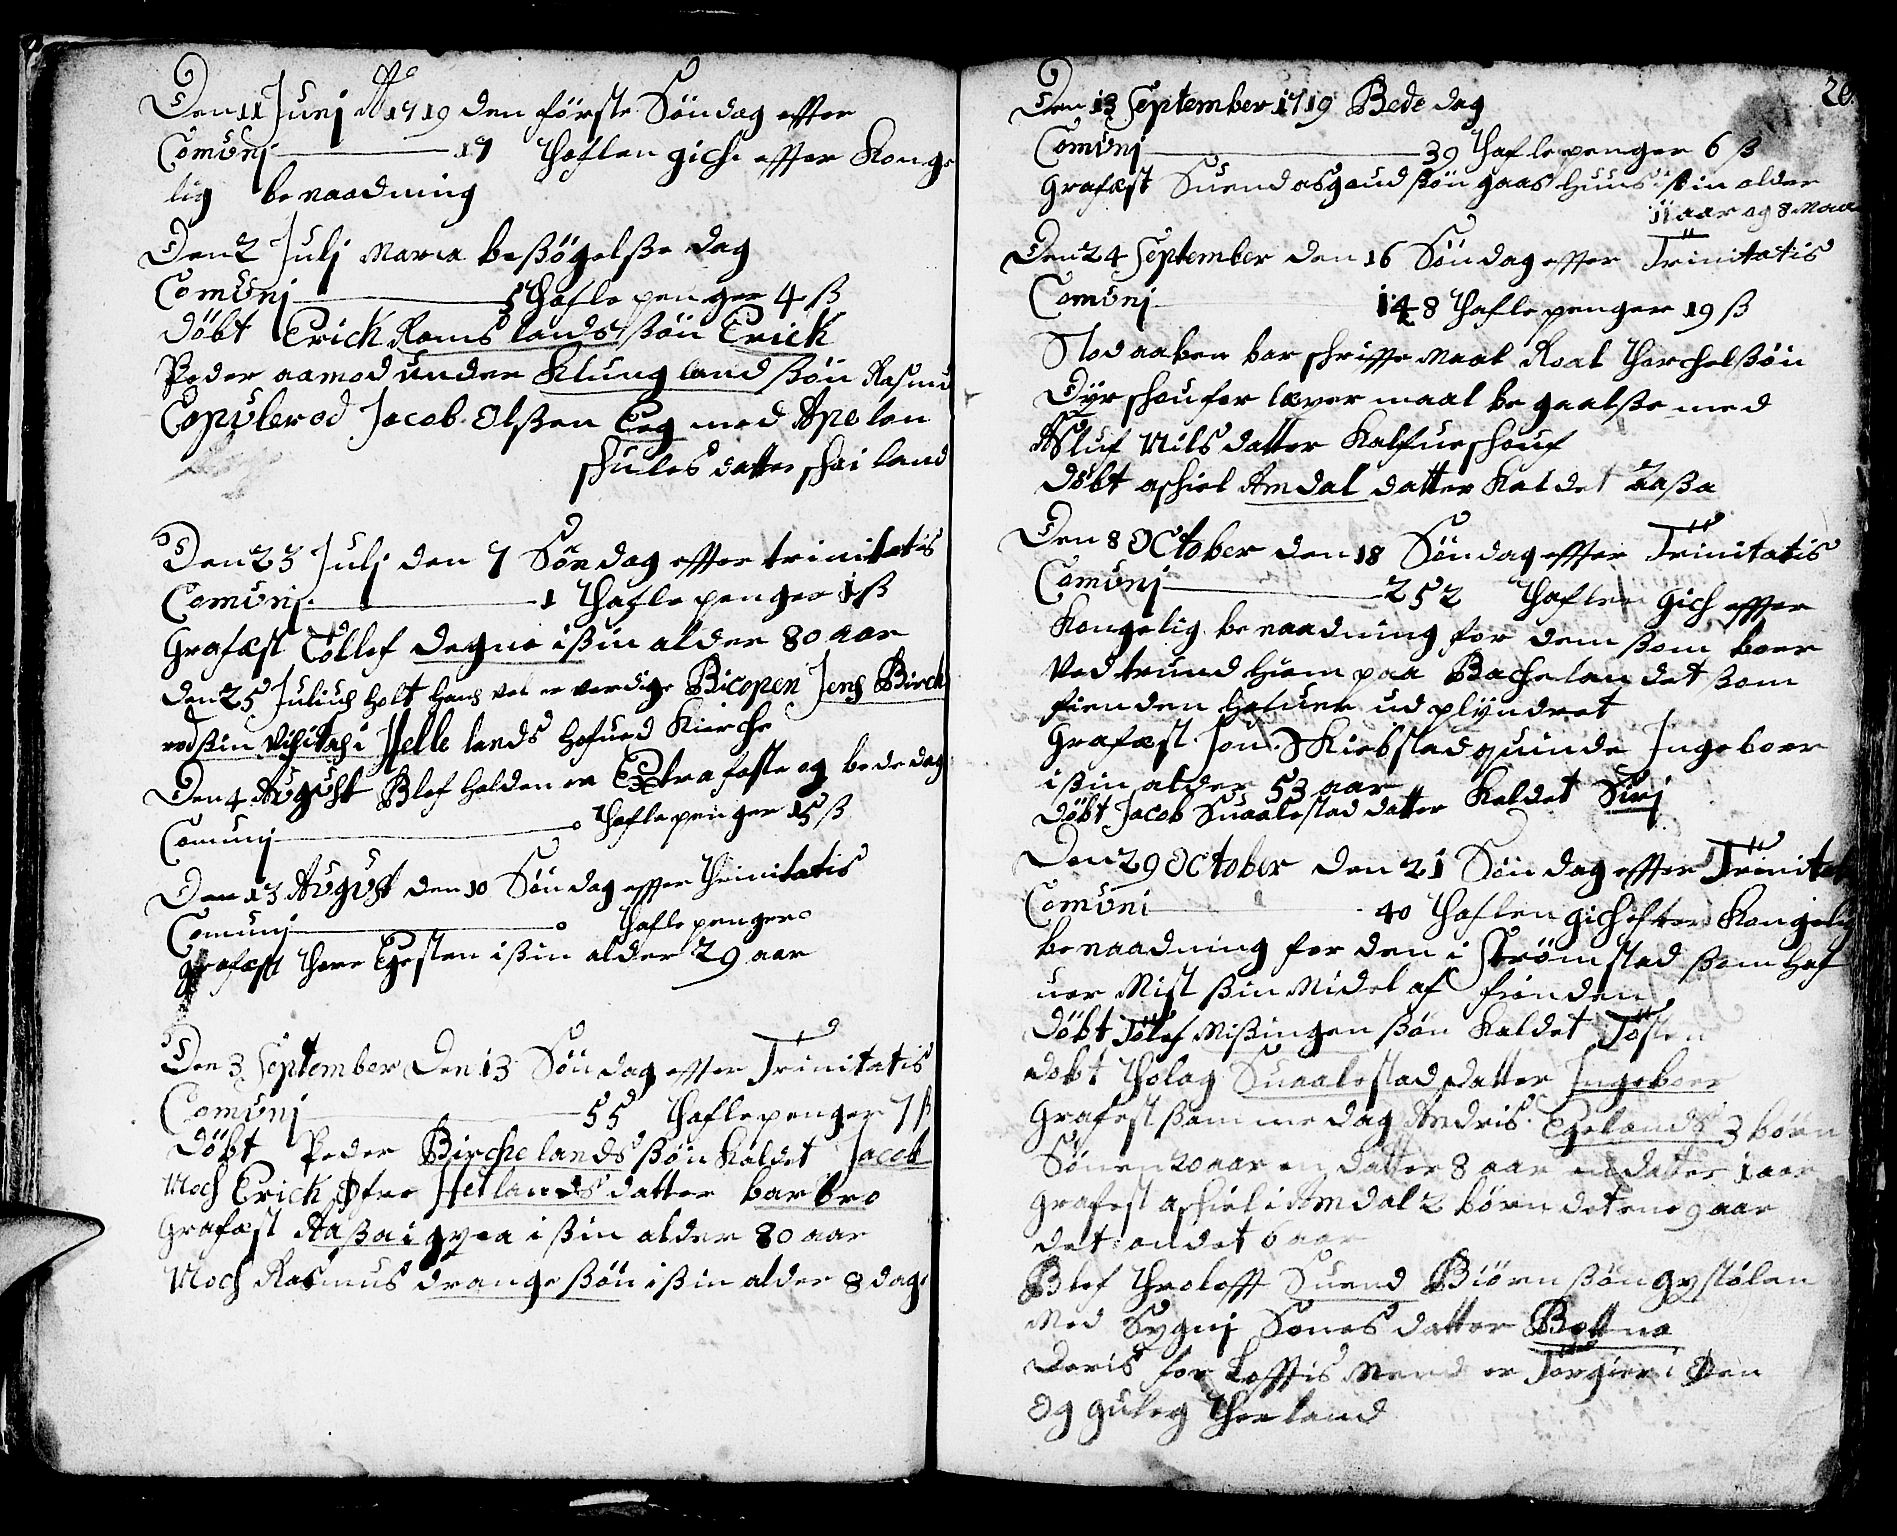 Den 11 Junj Ao 1719 den förste Söndag effter
Comunj 17 thaflen gich effter Konge
lig benaadning
Den 2 Julj Maria beßögelße dag
Comunj 5 thafle penger 4 ß
döbt Erick Ramslands ßön Erick
Peder aamod under Klungland ßön Rasmu
Copulered Jacob Olßen Eeg med Apelon
schules datter scheiland
Den 23 Julj den 7 Söndag effter trinitatis
Comunj 1 thafle penger 1 ß
Grafæst Tollef degne i ßin alder 80 aar
den 25 Julius holt hans vel er verdige Bicopen Jens Birch
rod ßin visitas i Helle lands hofued Kierche
Den 4 August Blef holden en Extra faste og bededag
Comunj 0 thafle penger 15 ß
Den 13 August den 10 Söndag effter thrinitatis
Comunj 0 thafle penger 0
grafæst thore Egesten i ßin alder 29 aar
Den 3 September Den 13 Söndag effter Trinitatis
Comunj 55 thafle penger 7 ß
döbt Peder Birchelands ßön kaldet Jacob
Noch Erick Øfre Hetlands datter barbro
Grafæst Aaßa i gyea i ßin alder 80 aar
Noch Rasmus drange ßön i ßin alder 8 dage
26
Den 13 September 1719 Bede dag
Comunj 39 thafle penger 6 ß
Grafæst Suend asgaud ßön gaas huus i ßin alder
11 aar og 8 Maa
Den 24 September den 16 Söndag effter Trinitatis
Comunj 148 thafle penger 19 ß
Stod aaben bar schriffte maal Roal thorchelßön
Dyrschou for læger maal begaalße med
Asluf Nils datter Kalfueschouf
döbt aschiel Amdal datter kaldet Aaßa
Den 8 October den 18 Söndag effter Trinitatis
Comunj 252 thaflen gich effter
Kongelig benaadning for dem ßom boer
ved trund hiem paa Bachelandet ßom
fienden hafuer udplyndret
Grafæst Jon Skiebstad quinde Ingeboer
i ßin alder 53 aar
döbt Jacob Suaalestad datter Kaldet Sirj
Den 29 October den 21 Söndag effter Trinitat
Comuni 40 thaflen gich efter Kongelig
benaadning for den i Strömstad ßom haf
uer Mist ßin Midel af fienden
döbt Tölef Mißingen ßön kaldet Tösten
dobt tholag Suaalestad datter Ingeboer
Grafest ßamme dag Andris Egelands 3 börn
Sönen 20 aar en datter 8 aar en datter 1 aar
grafest aschiel i Amdal 2 börn det ene 9 aar
det andet 6 aar
Blef throlofft Suend Biörn ßön gystölen
Med Sygni Sones datter Bottne
deris for Lofftis Mend er Torgier i Øen
Og guleg theeland